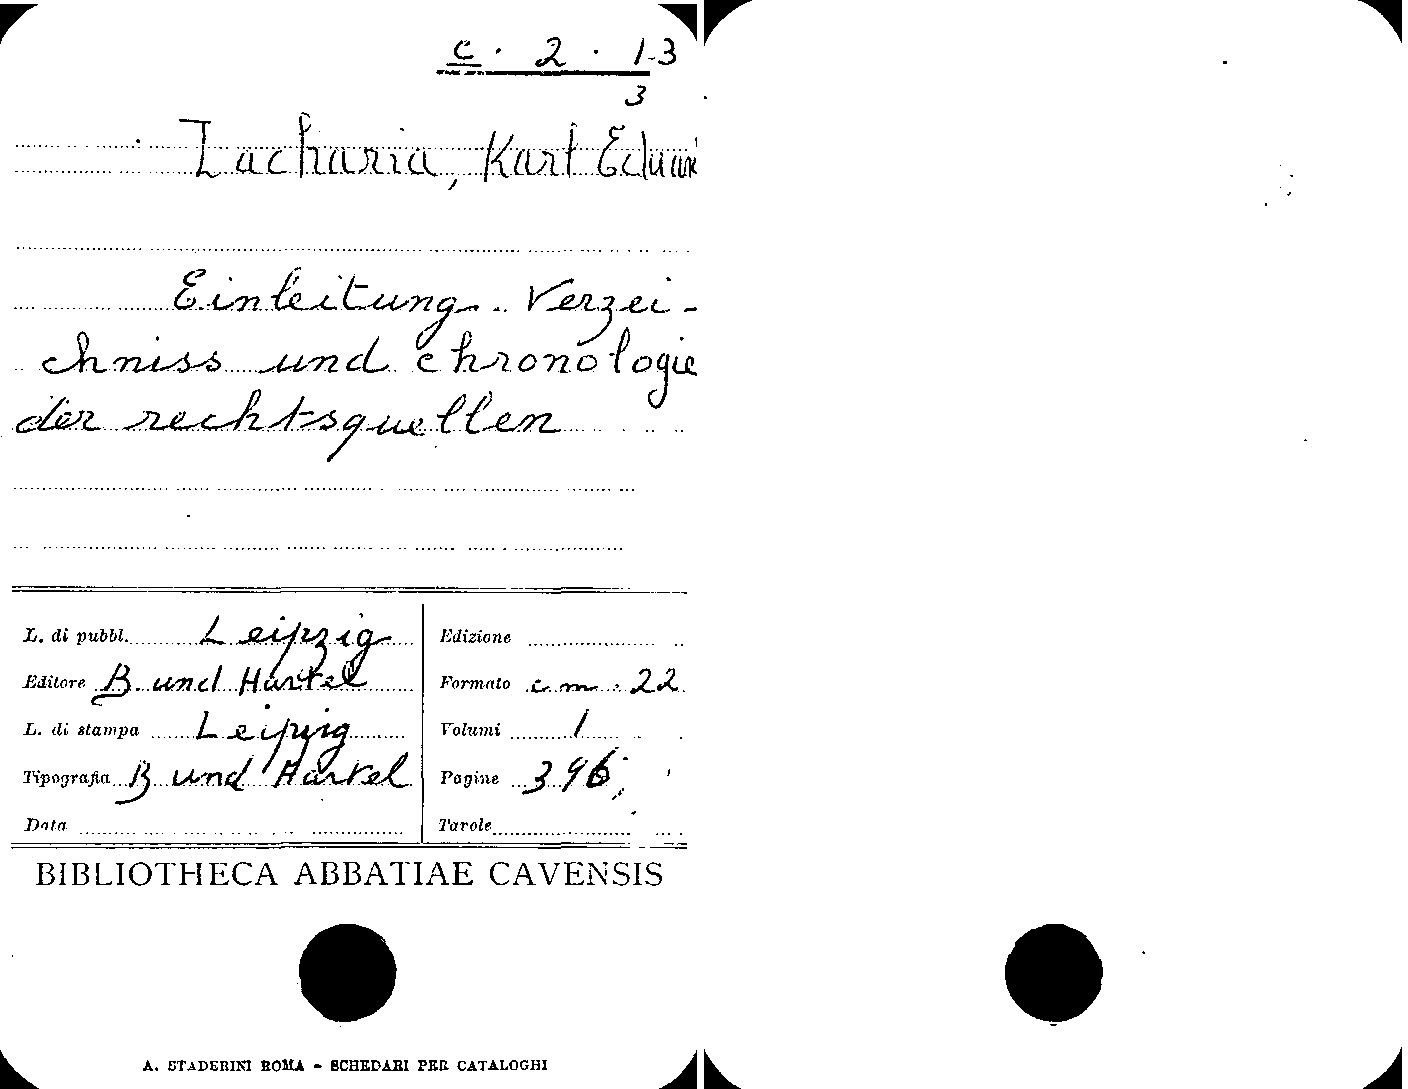 c. 2. 1-3
3
Zacharia, Karl Eduard
Einleitung. Verzei-
chniss und chronologie
der rechtsquellen
L. di pubbl. Leipzig
Editore B und Hartel
L. di stampa Leipzig
Tipografia B und Hartel
Data
Edizione
Formato cm. 22
Volumi 1
Pagine 396
Tavole
BIBLIOTHECA ABBATIAE CAVENSIS
A. STADERINI ROMA - SCHEDARI PER CATALOGHI